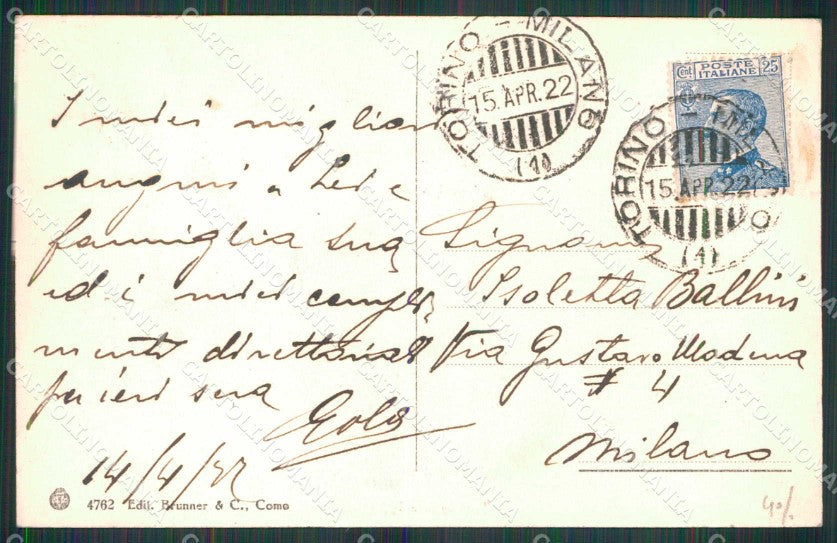 TORINO - MILANO
15.APR.22
(4)
POSTE ITALIANE
Cent 25
TORINO - MILANO
15.APR.22
(4)
I miei migliori
auguri a Lei e
famiglia sua
ed i miei compli-
menti direttoriali
per ieri sera
14/4/22
Signora
Isoletta Ballini
Via Gustavo Modena
# 4
Milano
4762 Edit. Brunner & C., Como
CARTOLINOMANIA